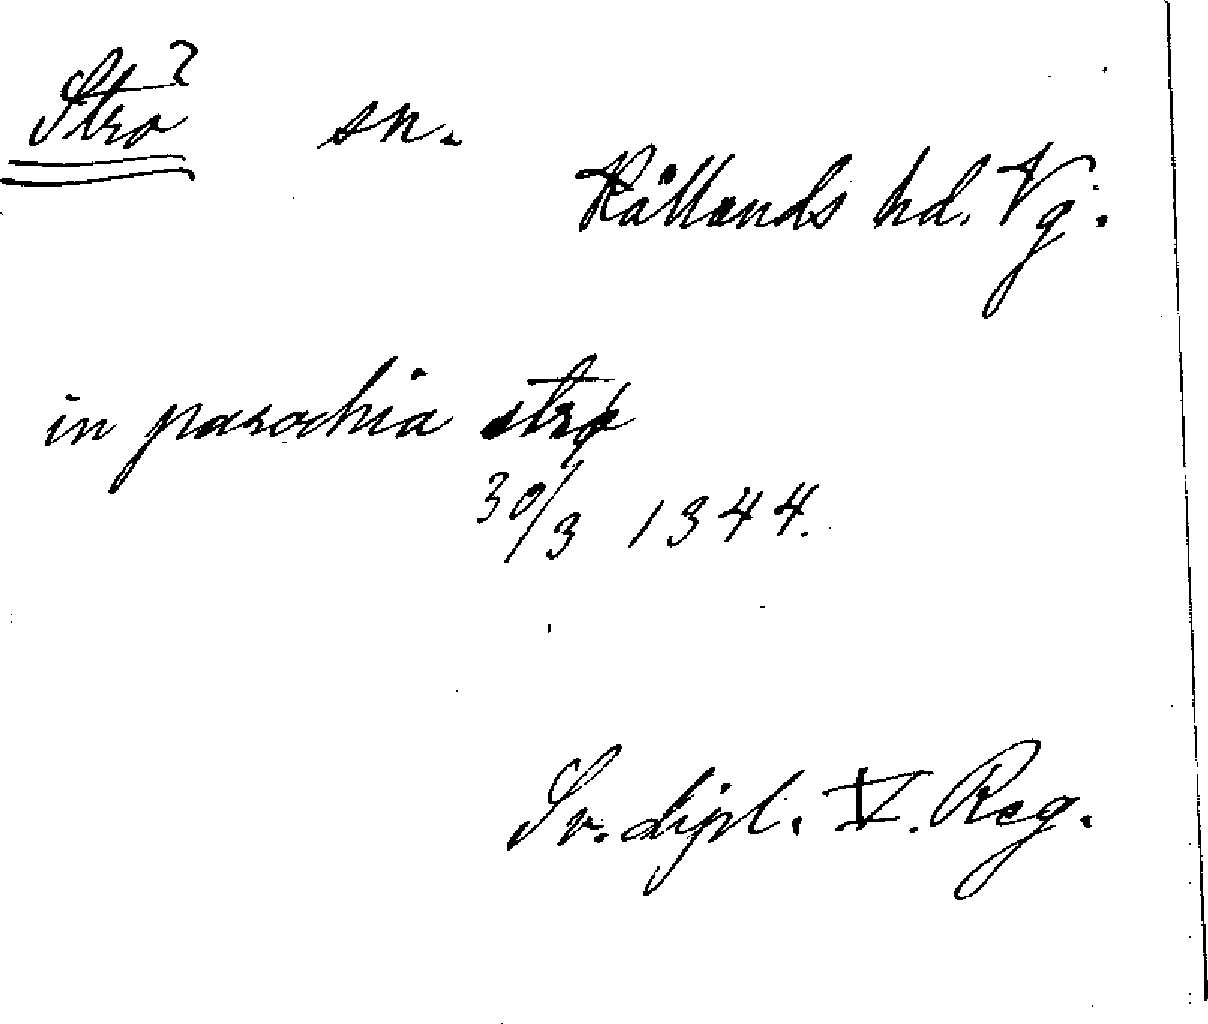 Strö? sn.
Kållands hd. Vg.
in parochia strø
30/3 1344.
Sv. dipl. V. Reg.